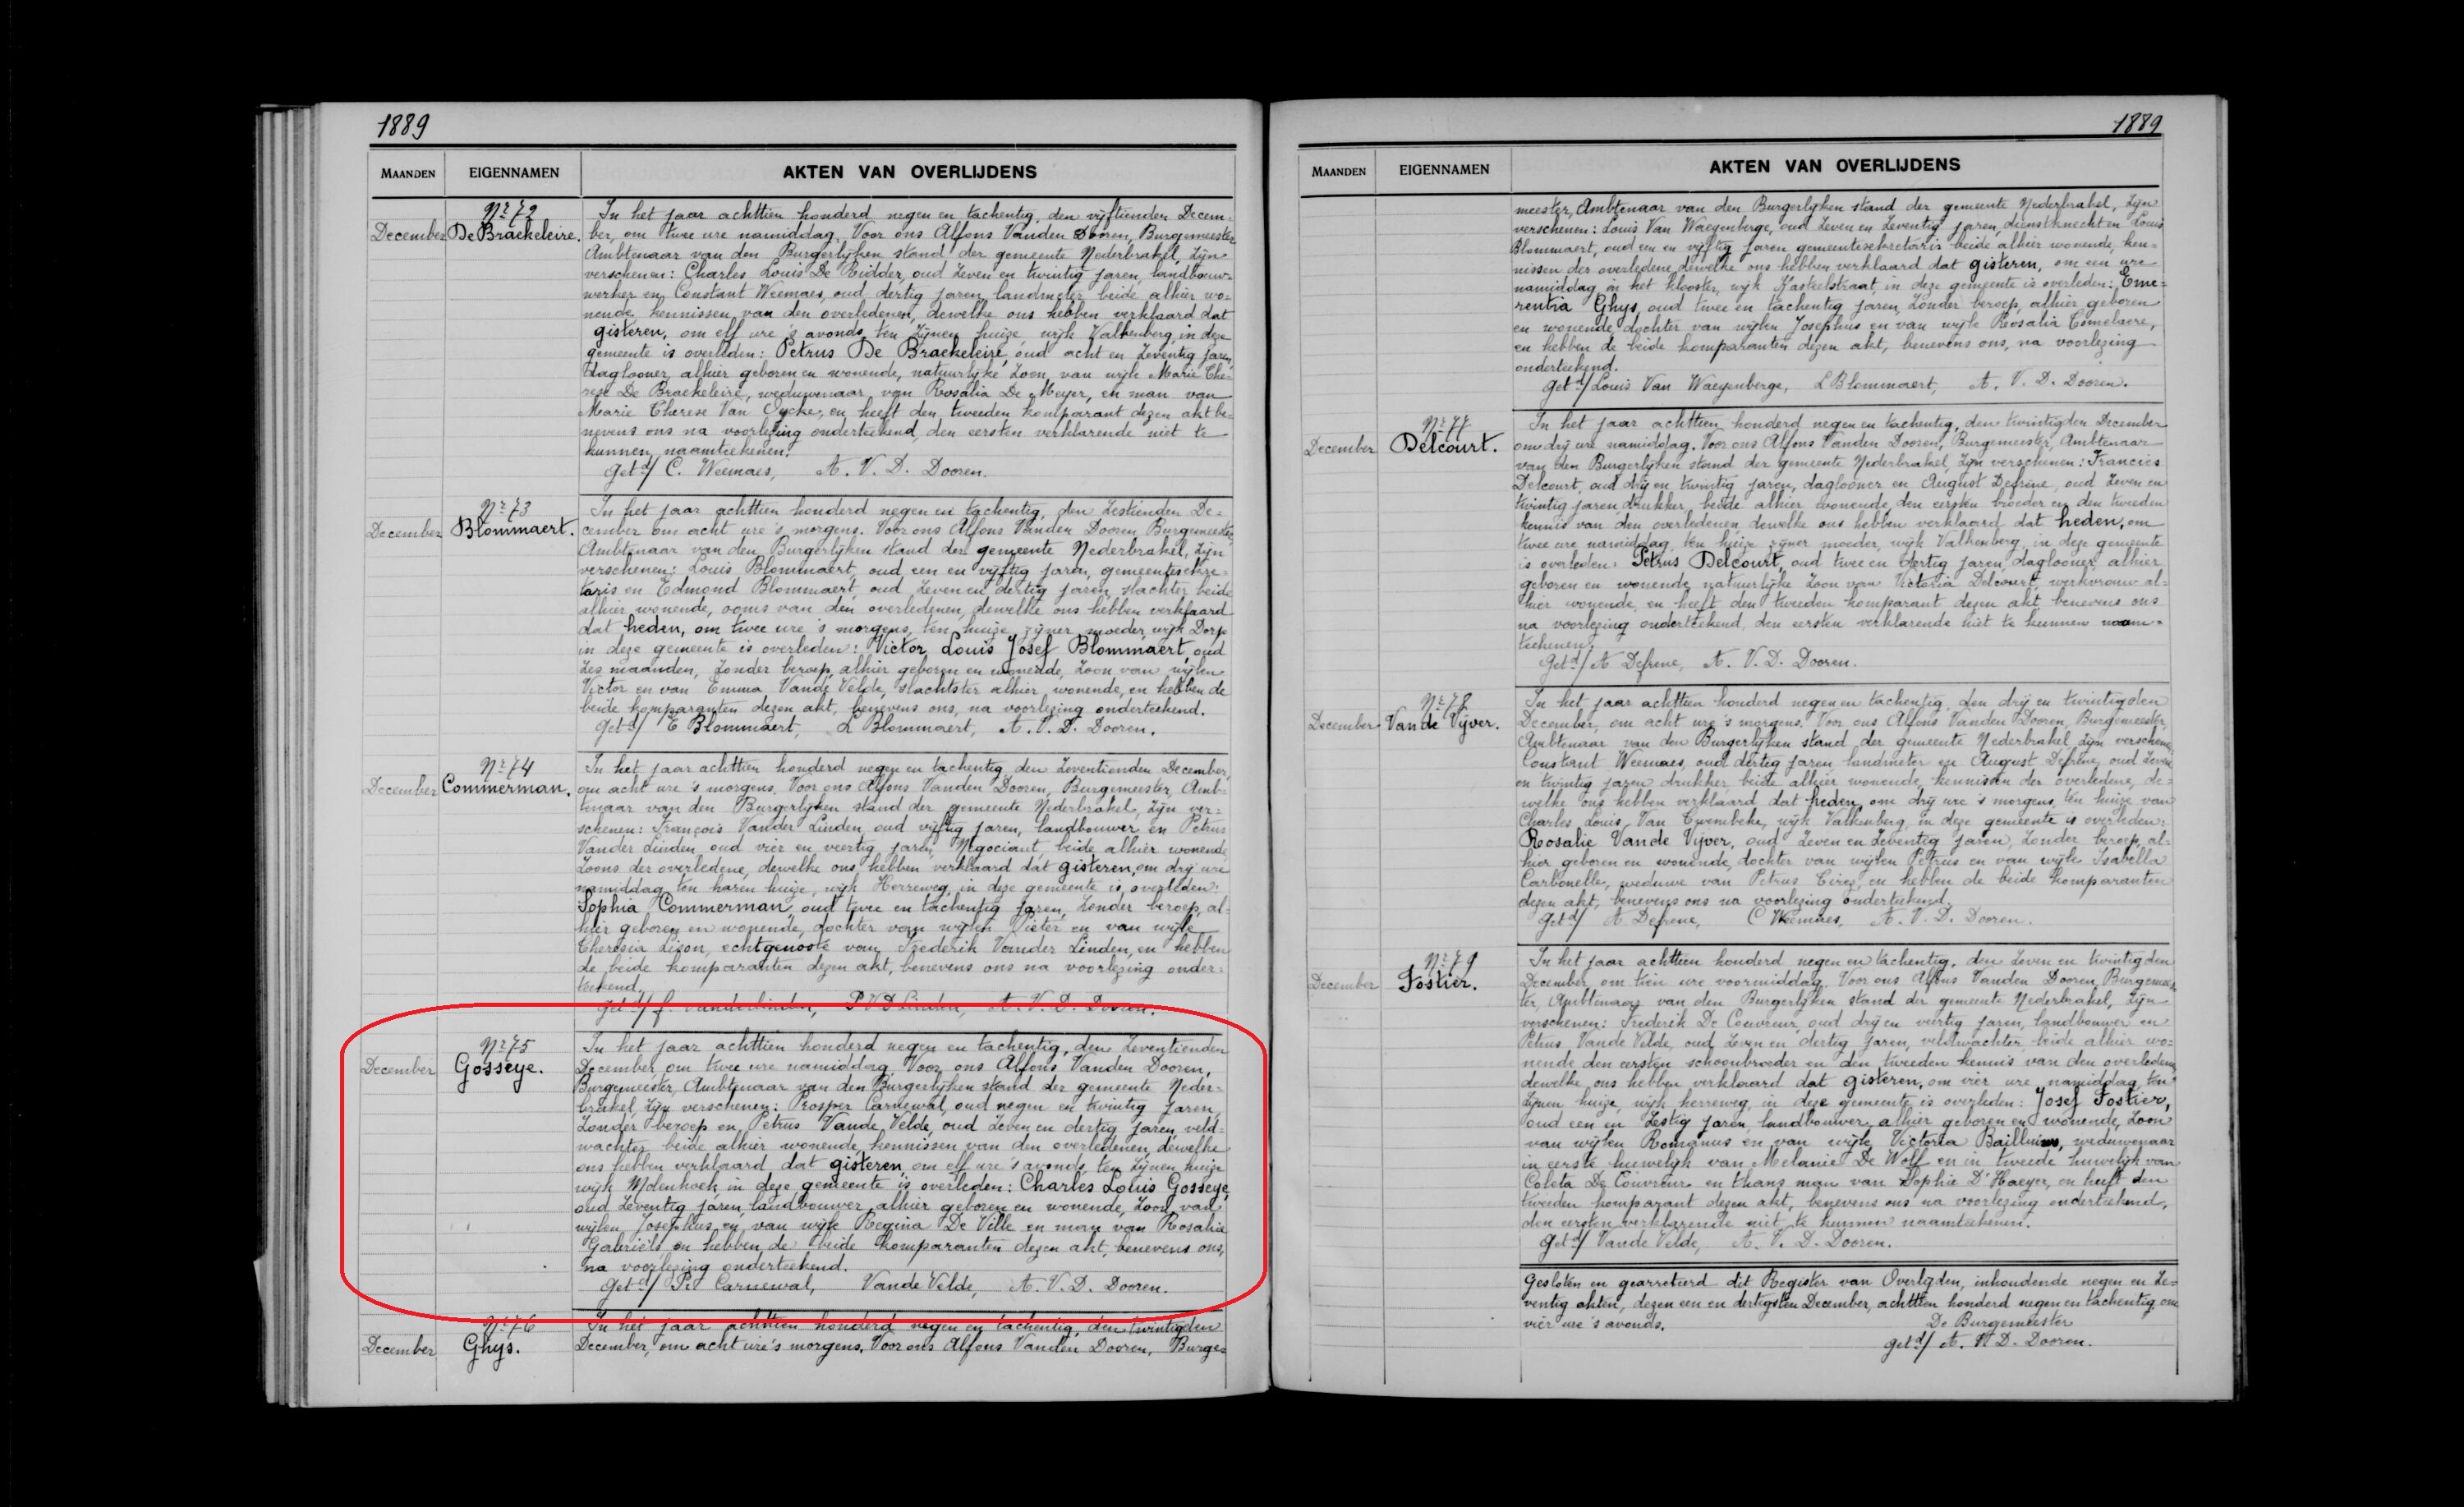 1889
MAANDEN EIGENNAMEN AKTEN VAN OVERLIJDENS
Nr 72
December De Braekeleire.
In het jaar achttien honderd negen en tachentig, den vijftienden Decem-
ber, om twee ure namiddag, Voor ons Alfons Vanden Dooren, Burgemeester
Ambtenaar van den Burgerlijken stand der gemeente Nederbrakel, zijn
verschenen: Charles Louis De Ridder, oud zeven en twintig jaren, landbouw-
werker en Constant Weemaes, oud dertig jaren, landmeter beide alhier wo-
nende, kennissen van den overledenen, dewelke ons hebben verklaard dat
gisteren, om elf ure 's avonds, ten zijnen huize, wijk Valkenberg, in deze
gemeente is overleden: Petrus De Braekeleire, oud acht en zeventig jaren,
daglooner, alhier geboren en wonende, natuurlijke zoon van wijle Marie The-
rese De Braekeleire, weduwenaar van Rosalia De Meyer, en man van
Marie Therese Van Eycke, en heeft den tweeden komparant dezen akt be-
nevens ons na voorlezing onderteekend, den eersten verklarende niet te
kunnen naamteekenen.
Getd/ C. Weemaes, A. V. D. Dooren.
Nr 73
December Blommaert.
In het jaar achttien honderd negen en tachentig, den zestienden De-
cember om acht ure 's morgens. Voor ons Alfons Vanden Dooren Burgemeester
Ambtenaar van den Burgerlijken stand der gemeente Nederbrakel, zijn
verschenen: Louis Blommaert, oud een en vijftig jaren, gemeentesekre-
taris en Edmond Blommaert, oud zeven en dertig jaren, slachter beide
alhier wonende, ooms van den overledenen, dewelke ons hebben verklaard
dat heden, om twee ure 's morgens, ten huize zijner moeder, wijk Dorp
in deze gemeente is overleden: Victor Louis Josef Blommaert, oud
zes maanden, zonder beroep, alhier geboren en wonende, zoon van wijlen
Victor en van Emma Vande Velde, slachtster alhier wonende, en hebben de
beide komparanten dezen akt, benevens ons, na voorlezing onderteekend.
Getd/ E Blommaert, L Blommaert, A. V. D. Dooren.
Nr 74
December Commerman.
In het jaar achttien honderd negen en tachentig, den zeventienden December,
om acht ure 's morgens. Voor ons Alfons Vanden Dooren, Burgemeester, Amb-
tenaar van den Burgerlijken stand der gemeente Nederbrakel, zijn ver-
schenen: François Vander Linden, oud vijftig jaren, landbouwer en Petrus
Vander Linden oud vier en veertig jaren, Negociant, beide alhier wonende
zoons der overledene, dewelke ons hebben verklaard dat gisteren, om drij ure
namiddag, ten haren huize, wijk Herreweg, in deze gemeente is overleden:
Sophia Commerman, oud twee en tachentig jaren, zonder beroep, al-
hier geboren en wonende, dochter van wijlen Pieter en van wijle
Theresia Lison, echtgenoote van Frederik Vander Linden, en hebben
de beide komparanten dezen akt, benevens ons na voorlezing onder-
teekend.
Getd/ f. vanderlinden, P VD Linden, A. V. D. Dooren.
Nr 75
December Gosseye.
In het jaar achttien honderd negen en tachentig, den zeventienden
December, om twee ure namiddag, Voor ons Alfons Vanden Dooren,
Burgemeester, Ambtenaar van den Burgerlijken stand der gemeente Neder-
brakel, zijn verschenen: Prosper Carnewal, oud negen en twintig jaren,
zonder beroep en Petrus Vande Velde, oud zeven en dertig jaren, veld-
wachter beide alhier wonende, kennissen van den overledenen, dewelke
ons hebben verklaard, dat gisteren, om elf ure 's avonds, ten zijnen huize
wijk Molenhoek, in deze gemeente is overleden: Charles Louis Gosseye,
oud zeventig jaren, landbouwer alhier geboren en wonende, zoon van
wijlen Josephus en van wijle Regina De Ville en man van Rosalia
Gabriëls en hebben de beide komparanten dezen akt, benevens ons,
na voorlezing onderteekend.
Getd/ Pr Carnewal, Vande Velde, A. V. D. Dooren.
Nr 76
December Ghys.
In het jaar achttien honderd negen en tachentig, den twintigden
December, om acht ure's morgens, Voor ons Alfons Vanden Dooren, Burge=
1889
MAANDEN EIGENNAMEN AKTEN VAN OVERLIJDENS
meester, Ambtenaar van den Burgerlijken stand der gemeente Nederbrakel, zijn
verschenen: Louis Van Waeyenberge, oud zeven en zeventig jaren, dienstknecht en Louis
Blommaert, oud een en vijftig jaren gemeentesekretaris beide alhier wonende, ken-
nissen der overledene, dewelke ons hebben verklaard dat gisteren, om een ure
namiddag, in het klooster, wijk Kasteelstraat, in deze gemeente is overleden: Eme-
rentia Ghys, oud twee en tachentig jaren, zonder beroep, alhier geboren
en wonende, dochter van wijlen Josephus en van wijle Rosalia Comelaere,
en hebben de beide komparanten dezen akt, benevens ons, na voorlezing
onderteekend.
Getd/ Louis Van Waeyenberge, L Blommaert, A. V. D. Dooren.
Nr 77
December Delcourt.
In het jaar achttien honderd negen en tachentig, den twintigden December
om drij ure namiddag. Voor ons Alfons Vanden Dooren, Burgemeester, Ambtenaar
van den Burgerlijken stand der gemeente Nederbrakel, zijn verschenen: Francies
Delcourt, oud drij en twintig jaren, daglooner en August Defrène, oud zeven en
twintig jaren, drukker, beide alhier wonende, den eersten broeder en den tweeden
kennis van den overledenen, dewelke ons hebben verklaard dat heden, om
twee ure namiddag, ten huize zijner moeder, wijk Valkenberg, in deze gemeente
is overleden: Petrus Delcourt, oud twee en dertig jaren, daglooner, alhier
geboren en wonende, natuurlijke zoon van Victoria Delcourt, werkvrouw al-
hier wonende, en heeft den tweeden komparant dezen akt, benevens ons
na voorlezing onderteekend, den eersten verklarende niet te kunnen naam-
teekenen.
Getd/ A Defrene, A. V. D. Dooren.
Nr 78
December Van de Vijver.
In het jaar achttien honderd negen en tachentig, den drij en twintigden
December, om acht ure 's morgens. Voor ons Alfons Vanden Dooren, Burgemeester,
Ambtenaar van den Burgerlijken stand der gemeente Nederbrakel, zijn verschenen
Constant Weemaes, oud dertig jaren landmeter en August Defrène, oud zeven
en twintig jaren drukker, beide alhier wonende, kennissen der overledene, de-
welke ons hebben verklaard dat heden, om drij ure 's morgens, ten huize van
Charles Louis Van Cwembeke, wijk Valkenberg, in deze gemeente is overleden:
Rosalie Vande Vijver, oud zeven en zeventig jaren, zonder beroep, al-
hier geboren en wonende, dochter van wijlen Petrus en van wijle Isabella
Carbonelle, weduwe van Petrus Cirez, en hebben de beide komparanten
dezen akt, benevens ons na voorlezing onderteekend.
Getd/ A Defrene, C Weemaes, A. V. D. Dooren.
Nr 79
December Fostier.
In het jaar achttien honderd negen en tachentig, den zeven en twintigden
December, om tien ure voormiddag. Voor ons Alfons Vanden Dooren, Burgemees-
ter, Ambtenaar van den Burgerlijken stand der gemeente Nederbrakel, zijn
verschenen: Frederik De Couvreur, oud drij en veertig jaren, landbouwer en
Petrus Vande Velde, oud zeven en dertig jaren, veldwachter, beide alhier wo-
nende, den eersten schoonbroeder en den tweeden kennis van den overledene,
dewelke ons hebben verklaard dat gisteren, om vier ure namiddag, ten
zijnen huize, wijk herreweg, in deze gemeente is overleden: Josef Fostier,
oud een en zestig jaren, landbouwer alhier geboren en wonende, zoon
van wijlen Romanus en van wijle Victoria Bailluin, weduwenaar
in eerste huwelijk van Melanie De Wolf en in tweede huwelijk van
Coleta De Couvreur en thans man van Sophie D'Haeyer, en heeft den
tweeden komparant dezen akt, benevens ons na voorlezing onderteekend,
den eersten verklarende niet te kunnen naamteekenen.
Getd/ Vande Velde, A. V. D. Dooren.
Gesloten en gearreteerd dit Register van Overlijden, inhoudende negen en ze-
ventig akten, dezen een en dertigsten December, achttien honderd negen en tachentig om
vier ure 's avonds.
De Burgemeester
getd/ A. V D. Dooren.